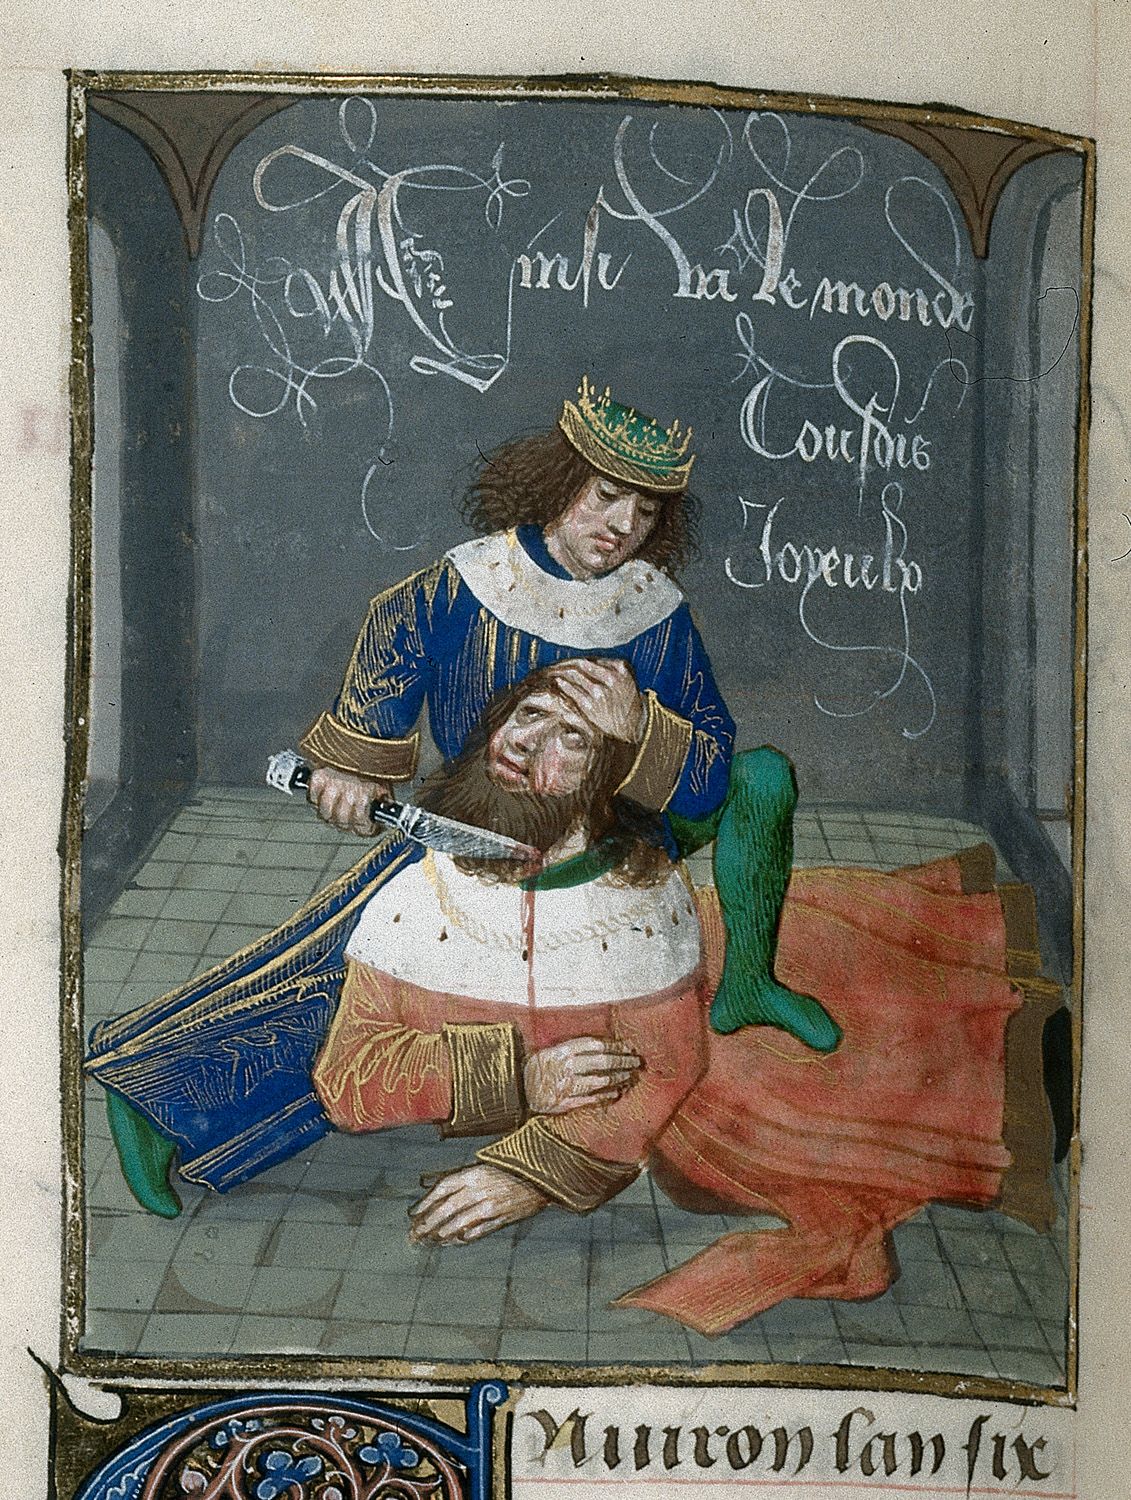 Ainsi va le monde
Tousdis
Joyeulx
Nuiron lan six